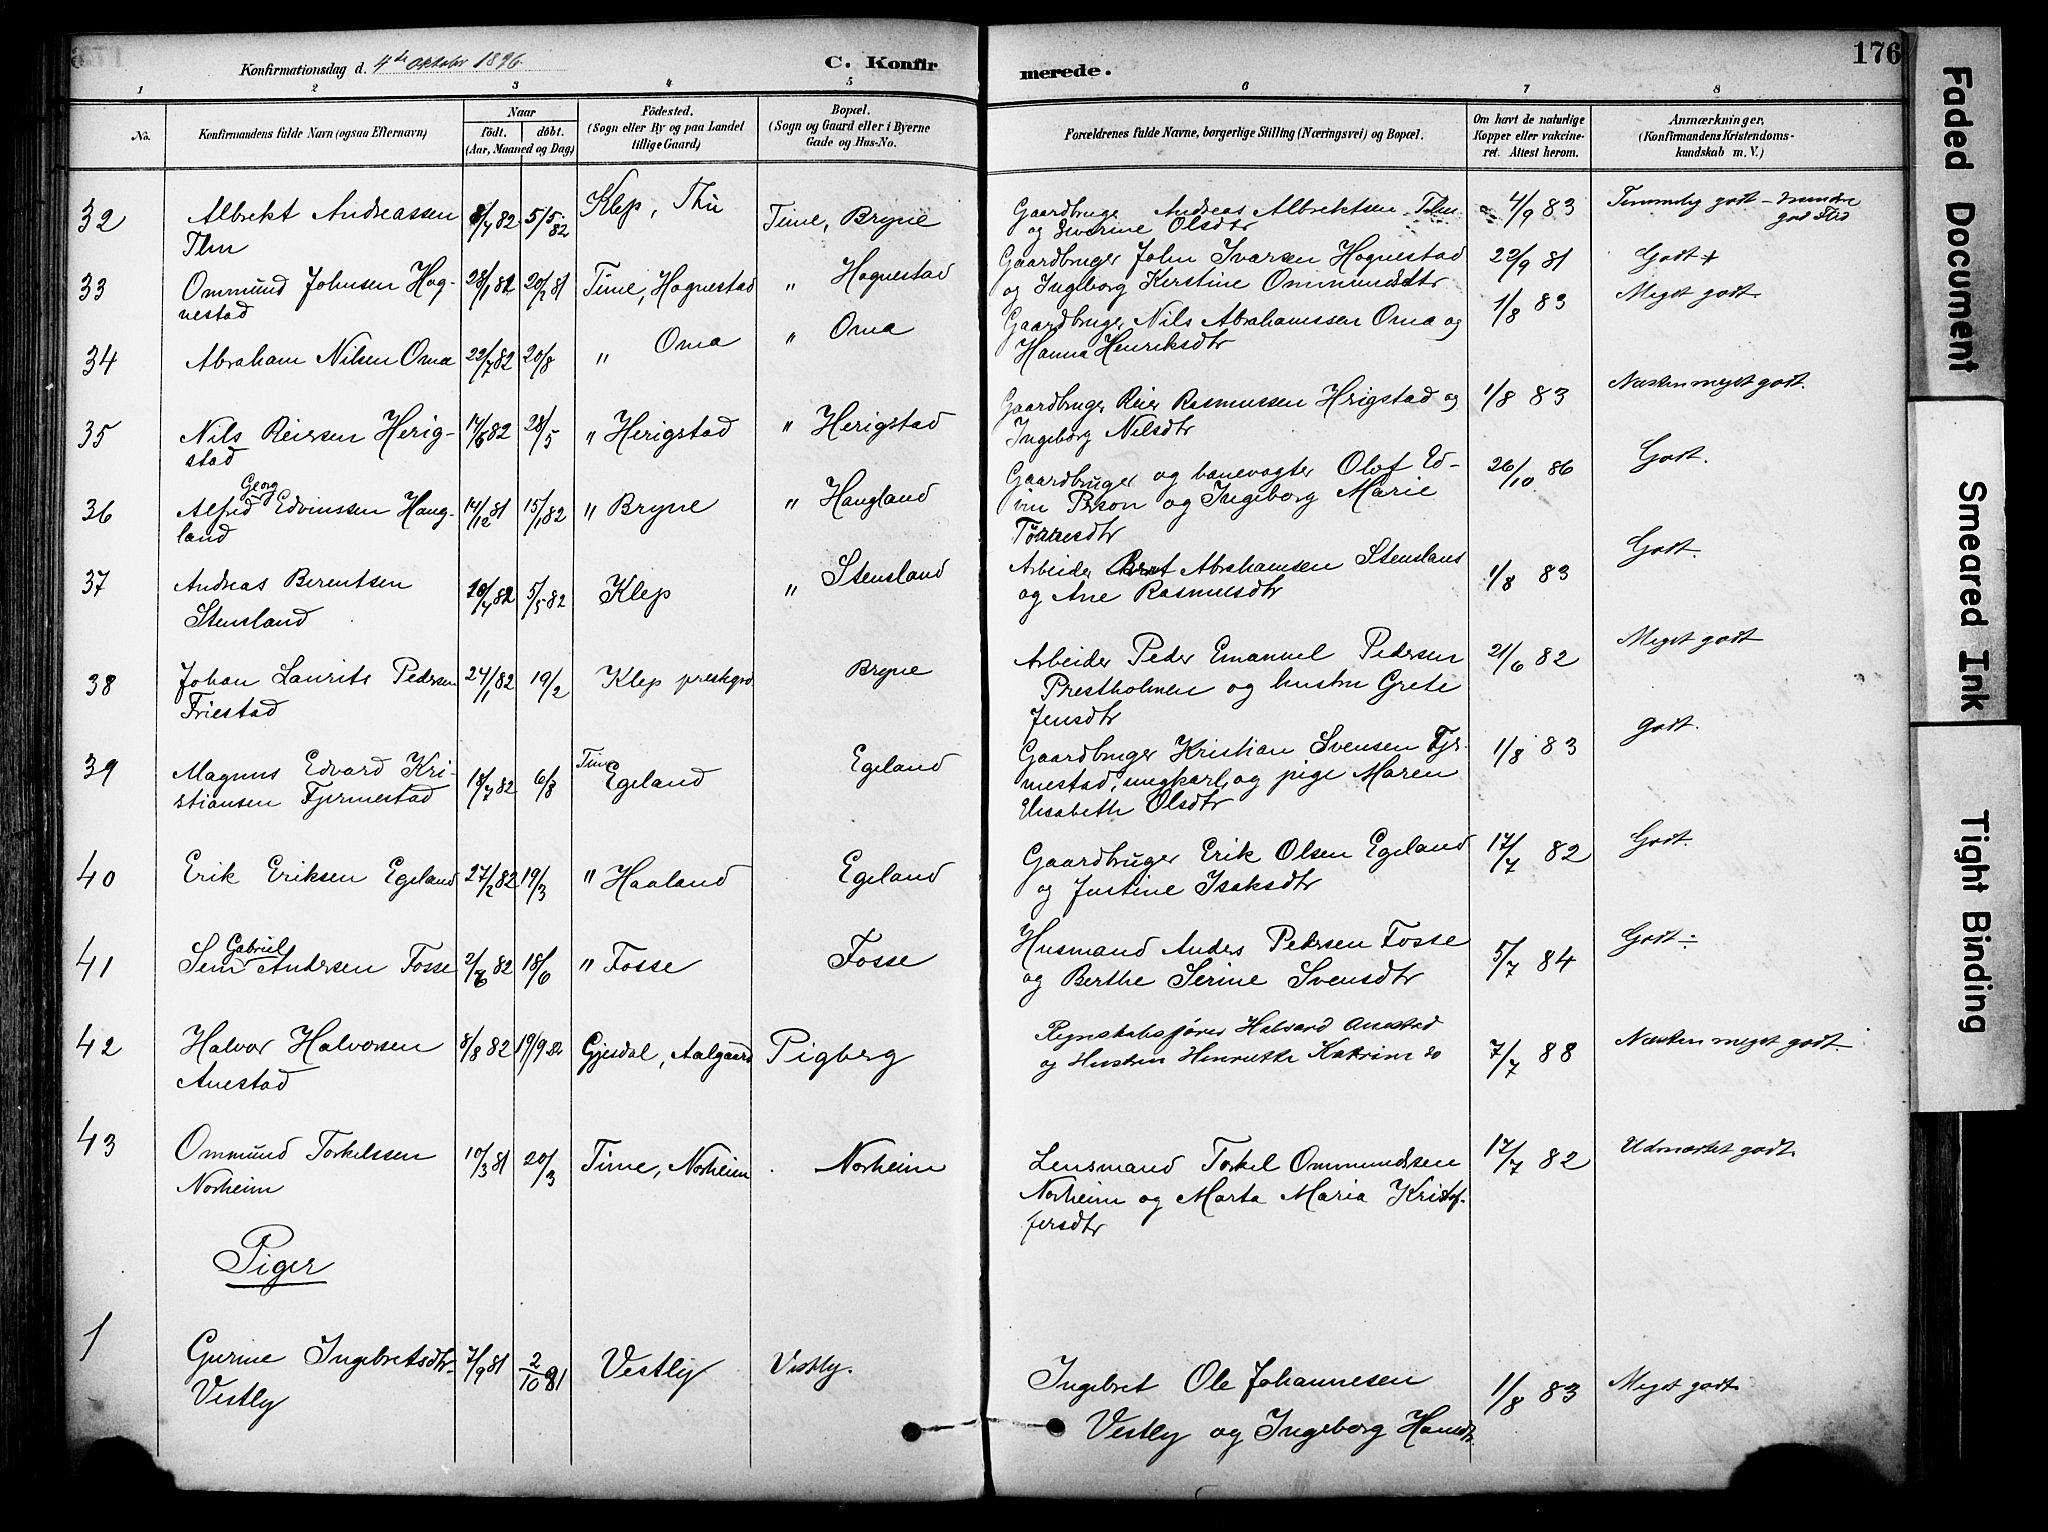 Konfirmationsdag d. 4de Oktober 1896
C. Konfirmerede.
176
1 2 3 4 5 6 7 8
No.
Konfirmandens fulde Navn (ogsaa Efternavn)
Naar
födt. döbt.
(Aar, Maaned og Dag)
Födested.
(Sogn eller By og paa Landet
tillige Gaard)
Bopæl.
(Sogn og Gaard eller i Byerne
Gade og Hus-No.
Forældrenes fulde Navne, borgerlige Stilling (Næringsvei) og Bopæl.
Om havt de naturlige
Kopper eller vakcine-
ret. Attest herom.
Anmærkninger,
(Konfirmandens Kristendoms-
kundskab m. V.)
32 Albrekt Andreassen 8/4 82 5/5 82 Klep, Thu Time, Bryne Gaardbruge Andreas Albrektsen Thu 4/9 83 Temmelig godt – mindre
Thu og Severine Olsdtr god Flid
33 Ommund Johnsen Hog- 28/1 81 20/2 81 Time, Hognestad " Hognestad Gaardbruger John Ivarsen Hognestad 22/9 81 Godt +
nestad og Ingeborg Kerstine Ommundsdtr
34 Abraham Nilsen Oma 22/7 82 20/8 " Oma " Oma Gaardbruger Nils Abrahamssen Oma og 1/8 83 Meget godt.
Hanna Henriksdtr
35 Nils Reiersen Herig- 14/5 82 28/5 " Herigstad " Herigstad Gaardbruger Reier Rasmussen Hrigstad og 1/8 83 Næsten meget godt.
stad Ingeborg Nilsdtr
36 Alfred Georg Edvinssen Haug- 14/12 81 15/1 82 " Bryne " Haugland Gaardbruger og banevogter Olof Ed- 26/10 86 Godt.
land vin Person og Ingeborg Marie
Tönnesdtr
37 Andreas Berentsen 20/4 82 5/5 82 Klep " Stensland Arbeider Brnt Abrahamsen Stensland 1/8 83 Godt.
Stensland og Ane Rasmusdtr
38 Johan Laurits Pedersen 24/1 82 19/2 Klep prestgrd Bryne Arbeider Peder Emanuel Pedersen 21/6 82 Meget godt
Friestad Prestholmen og hustru Grete
Jensdtr
39 Magnus Edvard Kri- 18/7 82 6/8 Time Egeland Egeland Gaardbruger Kristian Svensen Fjr- 1/8 83 godt.
stiansen Fjermestad mestad, ungkarl, og pige Maren
Elisabeth Olsdtr
40 Erik Eriksen Egeland 27/2 82 19/3 " Haaland Egeland Gaardbruger Erik Olsen Egeland 17/7 82 Godt.
og Justine Isaksdtr
41 Sem Gabriel Andersen Fosse 2/6 82 18/6 " Fosse Fosse Husmand Anders Petersen Fosse 5/7 84 Godt ÷
og Berthe Serine Svensdtr
42 Halvor Halvorsen 8/8 82 19/9 82 Gjesdal, Aalgaard Pigberg Regnskabsfører Halvard Anestad 7/7 88 Næsten meget godt.
Anestad og Hustru Henriette Katrine
43 Ommund Torkelssen 10/3 81 20/3 Time, Norheim Norheim Lensmand Torkel Ommundsen 17/7 82 Udmærket godt.
Norheim Norheim og Marta Maria Kristof-
fersdtr
Piger
1 Gurine Ingebretsdtr 7/9 81 2/10 81 Vestly Vestly. Ingebret Ole Johannesen 1/8 83 Meget godt.
Vestly Vestly og Ingeborg Hansdtr
Faded Document
Smeared Ink
Tight Binding